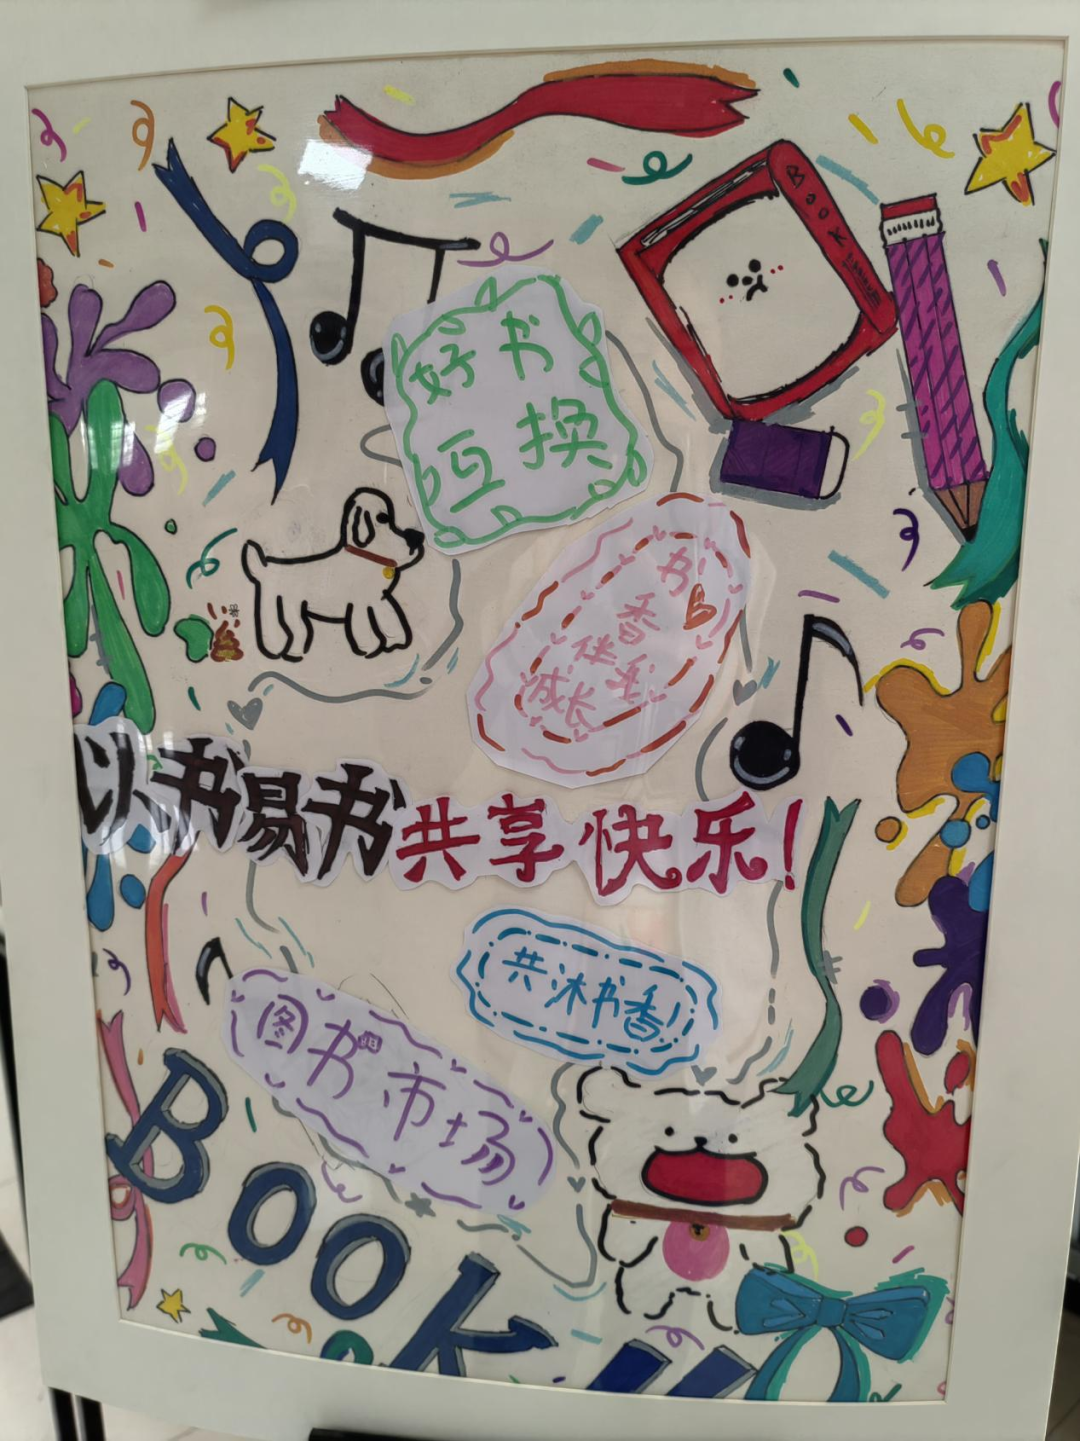 BOOK
好书
互换
书
香
伴我
成长
以书易书共享快乐!
共沐书香
图书市场
BOOK